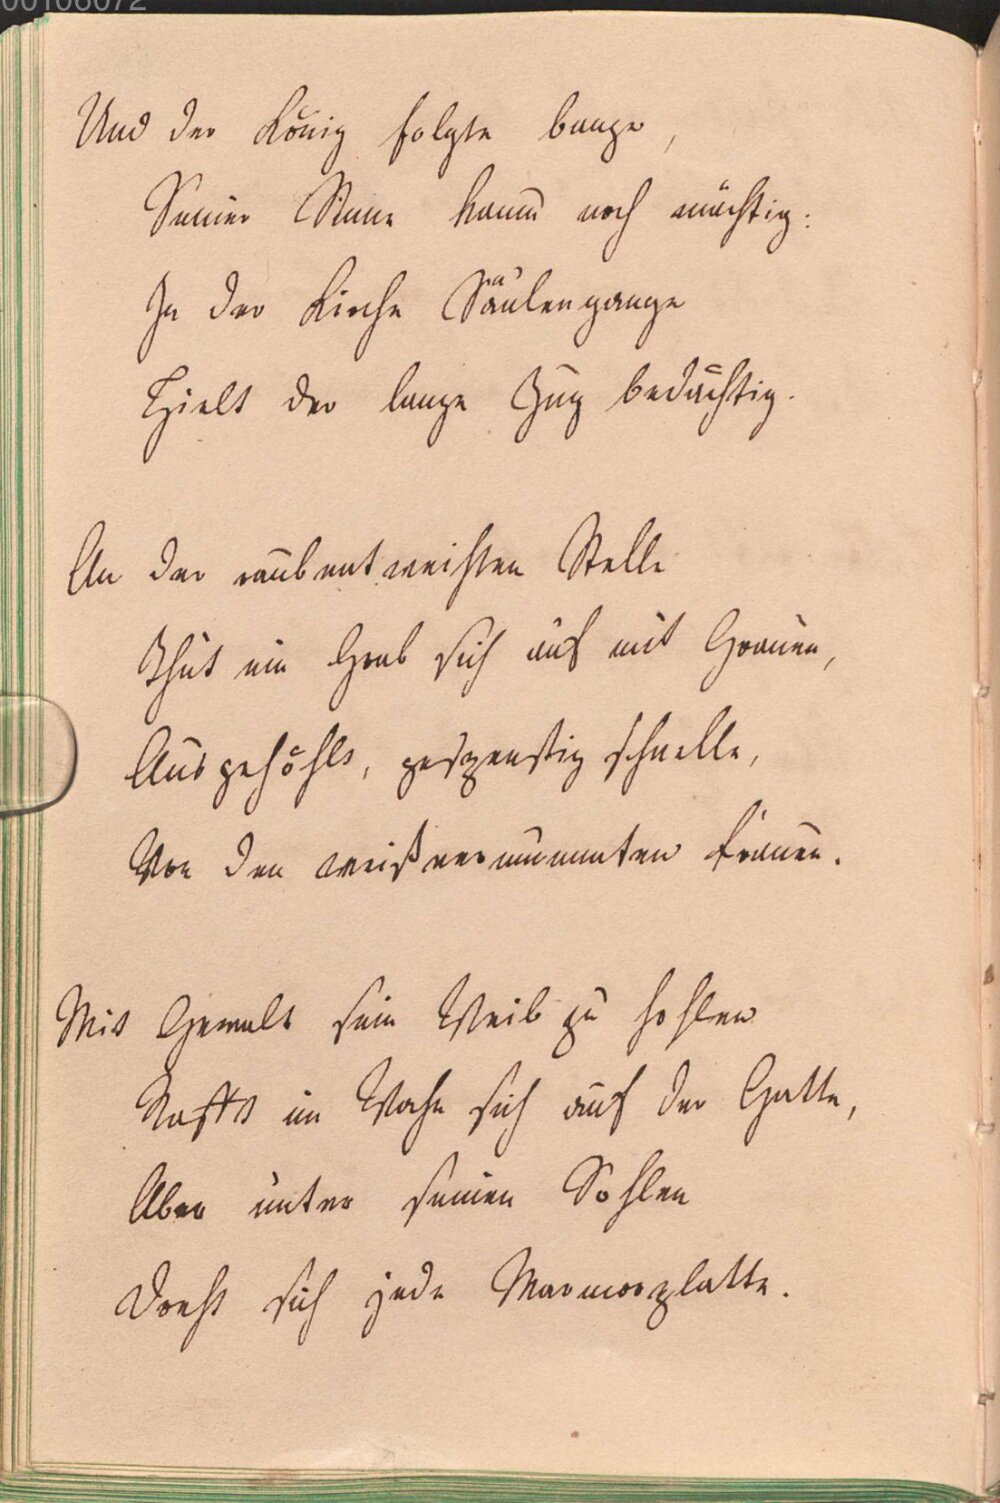 00106072
Und der König folgte bange,
Seiner Sinne kaum noch mächtig:
In der Kirche Säulengange
Hielt der lange Zug bedächtig.
An der raubentweihten Stelle
Thut ein Grab sich auf mit Grauen,
Ausgehöhlt, gespenstig schnelle,
Von den weißvermummten Frauen.
Mit Gewalt sein Weib zu hohlen
Rafft im Wahn sich auf der Gatte,
Aber unter seinen Sohlen
Dreht sich jede Marmorplatte.